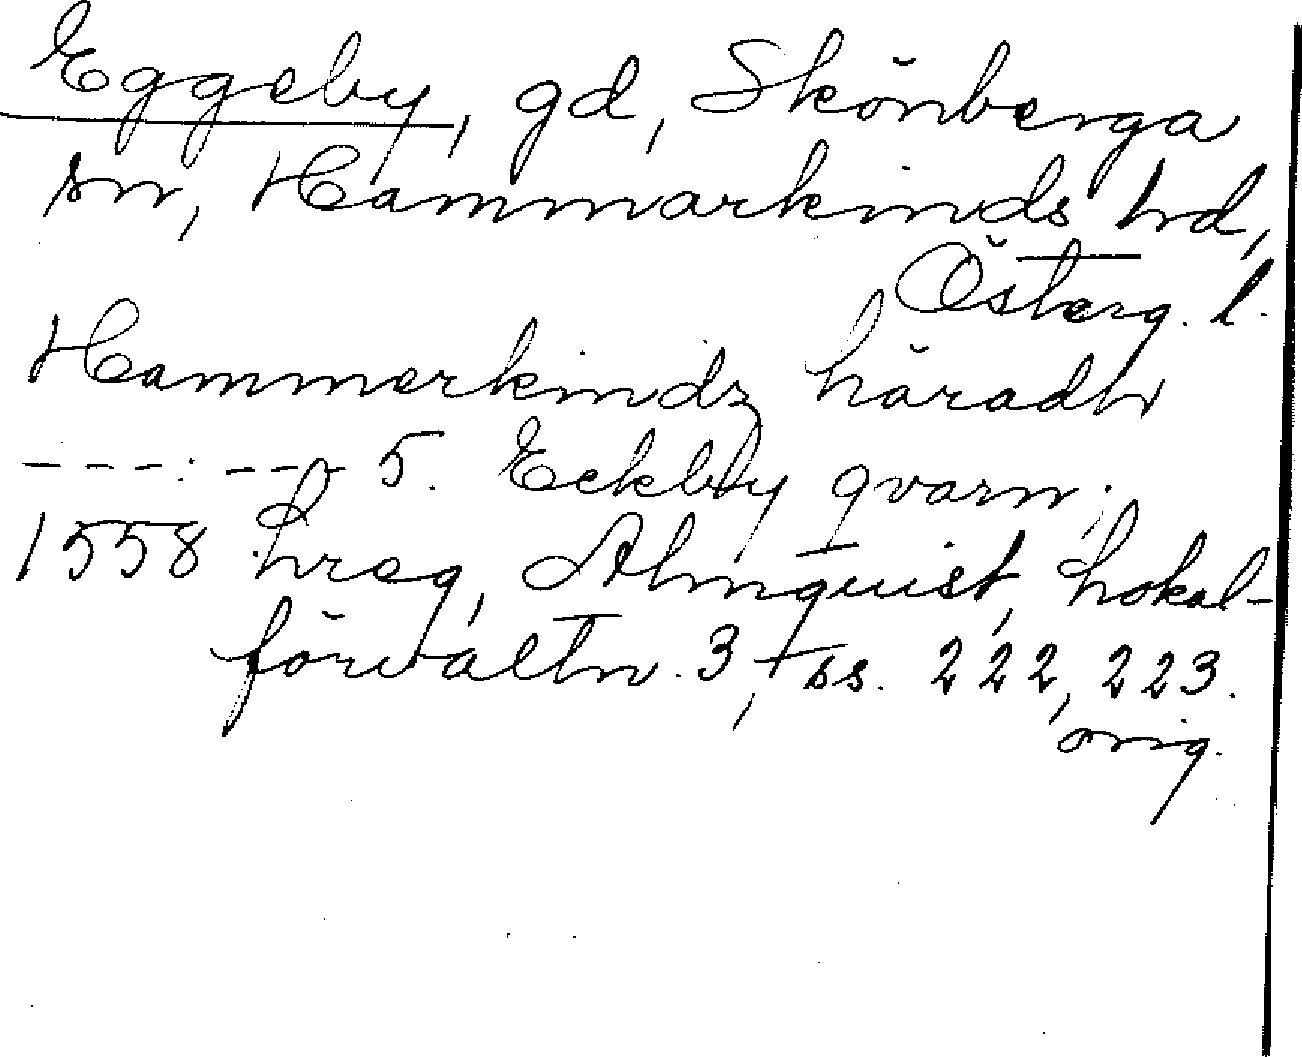 Eggeby, gd, Skönberga
sn, Hammarkinds hd,
Österg. l.
Hammerkindz häradh
- - - : - - - 5. Eckbly qvarn;
1558 hrsg, Almquist, Lokal-
förvaltn. 3, ss. 222, 223.
orig.